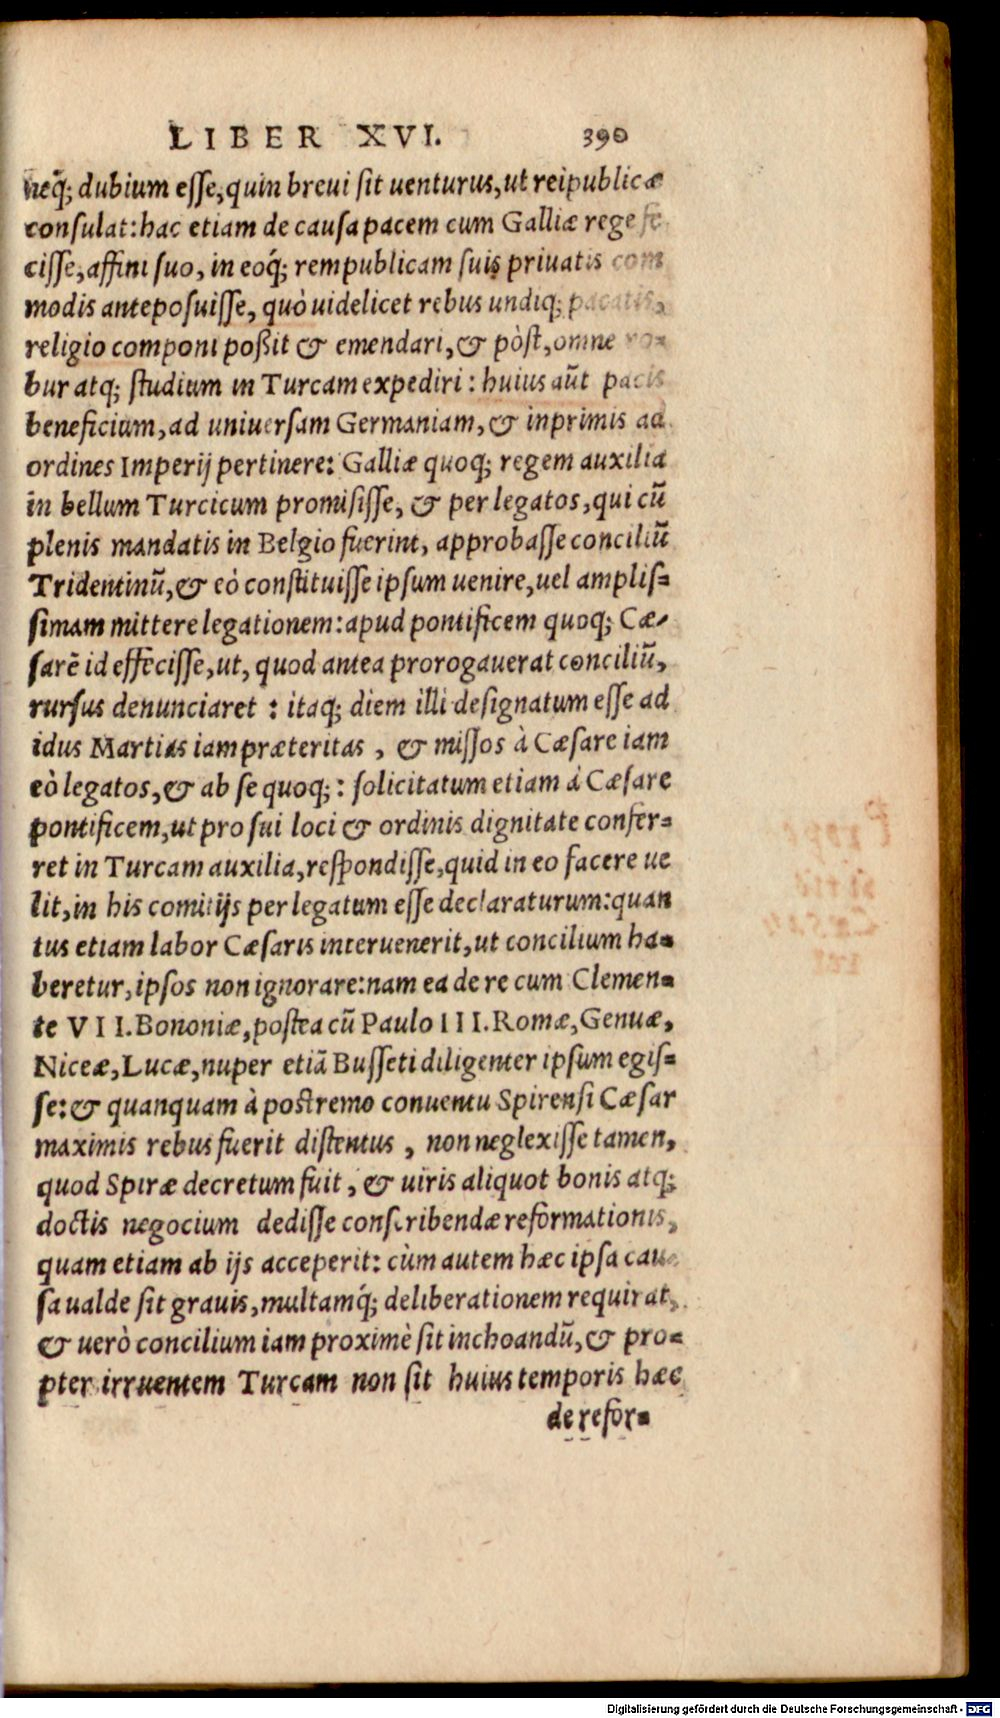 LIBER XVI. 390
neq́; dubium esse, quin brevi sit uenturus, ut reipublicæ
consulat: hac etiam de causa pacem cum Galliæ rege fe
cisse, affini suo, in eoq́; rempublicam suis priuatis com
modis anteposuisse, quò uidelicet rebus undiq; pacatis,
religio componi poßit & emendari, & pòst, omne ro-
bur atq; studium in Turcam expediri: huius aūt pacis
beneficium, ad universam Germaniam, & inprimis ad
ordines Imperij pertinere: Galliæ quoq; regem auxilia
in bellum Turcicum promisisse, & per legatos, qui cū
plenis mandatis in Belgio fuerint, approbasse conciliū
Tridentinū, & eò constituisse ipsum uenire, uel amplis-
simam mittere legationem: apud pontificem quoq; Cæ-
sarē id effecisse, ut, quod antea prorogauerat conciliū,
rursus denunciaret: itaq; diem illi designatum esse ad
idus Martias iam præteritas, & missos à Cæsare iam
eò legatos, & ab se quoq;: solicitatum etiam à Cæsare
pontificem, ut pro sui loci & ordinis dignitate confer-
ret in Turcam auxilia, respondisse, quid in eo facere ue
lit, in his comitijs per legatum esse declaraturum: quan
tus etiam labor Cæsaris interuenerit, ut concilium ha-
beretur, ipsos non ignorare: nam ea de re cum Clemen-
te VII. Bononiæ, postea cū Paulo III. Romæ, Genuæ,
Niceæ, Lucæ, nuper etiā Busseti diligenter ipsum egis-
se: & quanquam à postremo conuentu Spirensi Cæsar
maximis rebus fuerit distentus, non neglexisse tamen,
quod Spiræ decretum fuit, & uiris aliquot bonis atq;
doctis negocium dedisse conscribendæ reformationis,
quam etiam ab ijs acceperit: cùm autem hæc ipsa cau-
sa ualde sit grauis, multamq́; deliberationem requirat,
& uerò concilium iam proximè sit inchoandū, & pro-
pter irruentem Turcam non sit huius temporis hæc
de refor-
Digitalisierung gefördert durch die Deutsche Forschungsgemeinschaft - DFG